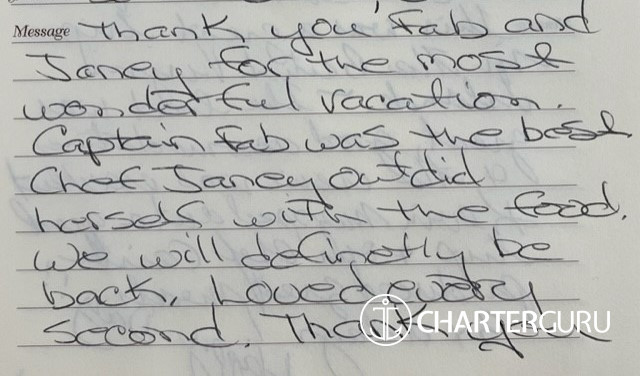 Message Thank you Fab and
Janey for the most
wonderful vacation.
Captain Fab was the best
Chef Janey outdid
herself with the food.
We will definetly be
back. Loved every
second. Thank you
CHARTERGURU